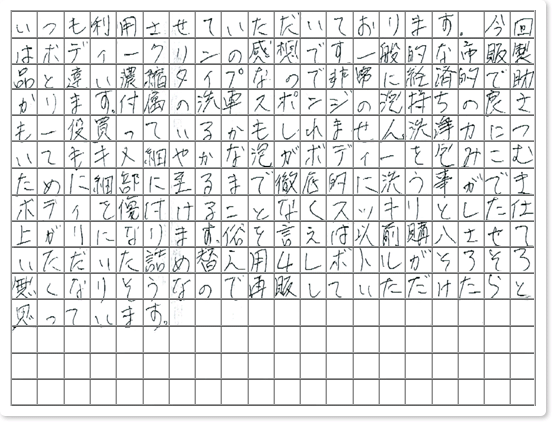 いつも利用させていただいております。今回
はボディークリンの感想です一般的な市販製
品と違い濃縮タイプなので非常に経済的で助
かります。付属の洗車スポンジの泡持ちの良さ
も一役買っているかもしれません。洗浄力につ
いてもキメ細やかな泡がボディーを包みこむ
ために細部に至るまで徹底的に洗う事ができ
ボディを傷付けることなくスッキリとした仕
上がりになります。俗を言えば以前購入させて
いただいた詰め替え用4Lボトルがそろそろ
無くなりそうなので再販していただけたらと
思っています。